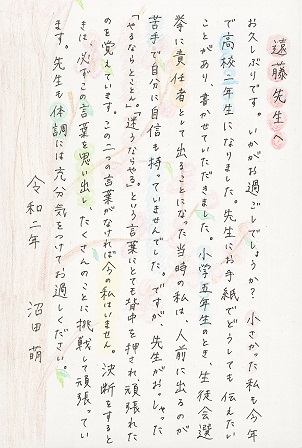 遠藤先生へ
お久しぶりです。いかがお過ごしでしょうか？小さかった私も今年
で高校二年生になりました。先生にお手紙でどうしても伝えたい
ことがあり、書かせていただきました。小学五年生のとき、生徒会選
挙に責任者として出ることになった当時の私は、人前に出るのが
苦手で自分に自信も持っていませんでした。ですが、先生がおっしゃった
「やるならとことん。」「迷うならやる。」という言葉にとても背中を押され頑張れた
のを覚えています。この二つの言葉がなければ今の私はいません。決断をすると
きは、必ずこの言葉を思い出し、たくさんのことに挑戦して頑張ってい
ます。先生も体調には充分気をつけてお過しください。
令和二年 沼田萌